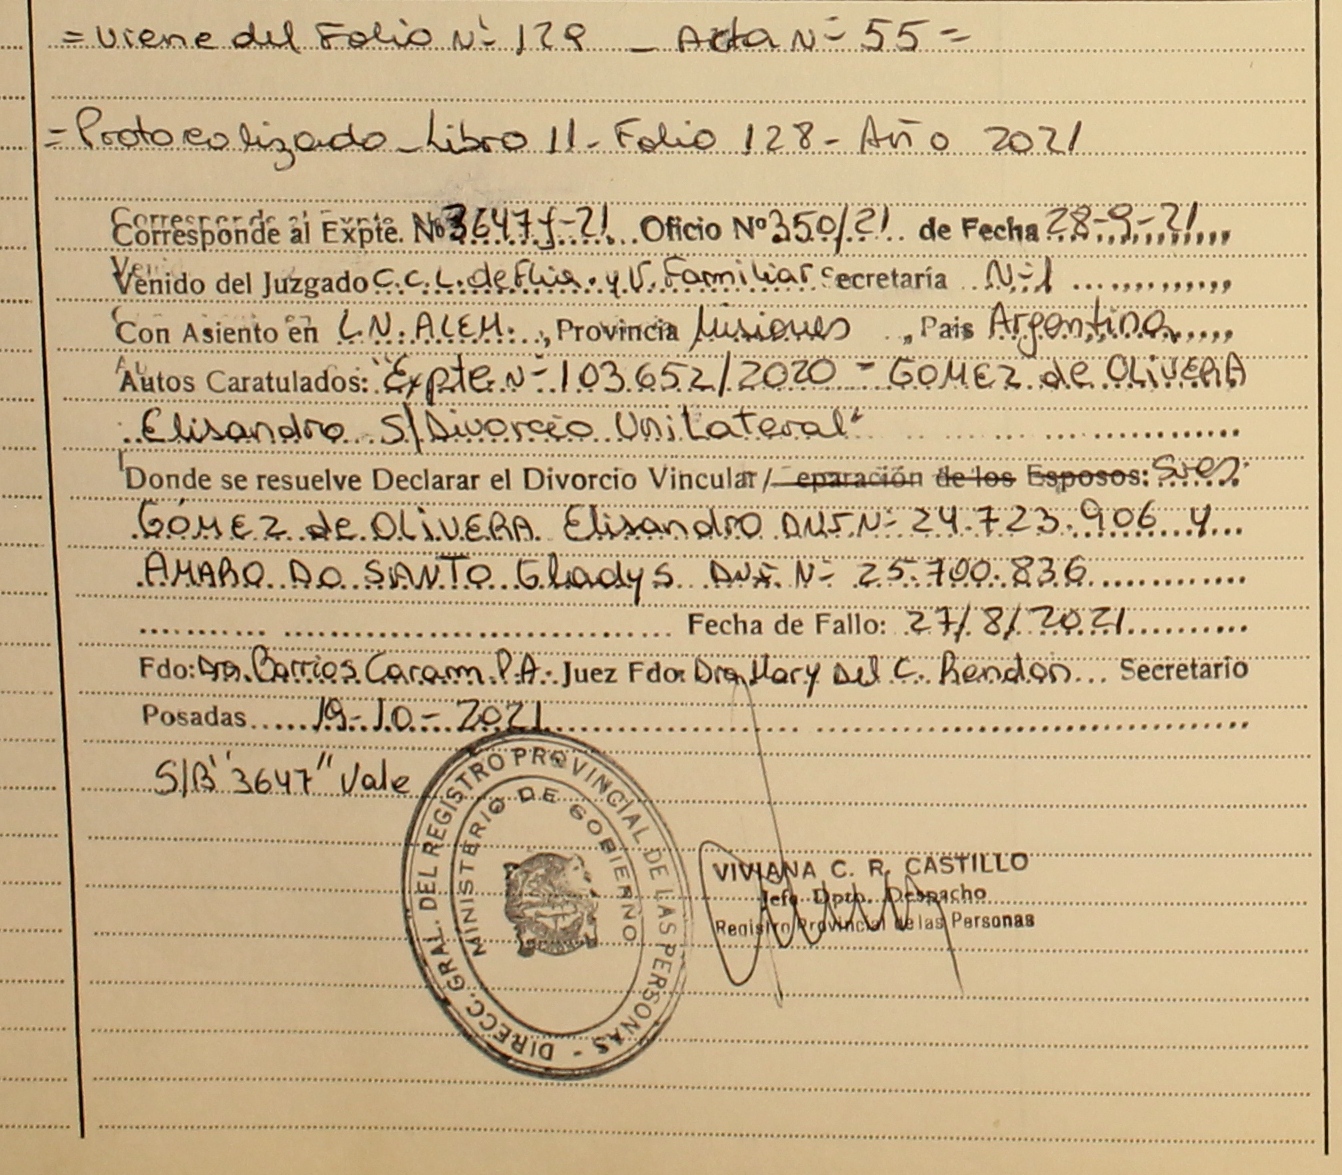 = Viene del Folio Nº 129 - Acta Nº 55 =
= Protocolizado - Libro 11 - Folio 128 - Año 2021
Corresponde al Expte. Nº 3647 J-21 Oficio Nº 350/21 de Fecha 28-9-21
Venido del Juzgado C.C.L. de Flia. y V. Familiar Secretaría Nº 1
Con Asiento en L.N. ALEM., Provincia Misiones, Pais Argentina
Autos Caratulados: "Expte. Nº 103.652/2020 - GOMEZ de OLIVERA
Elisandro S/Divorcio Unilateral"
Donde se resuelve Declarar el Divorcio Vincular/ eparación de los Esposos: Sres.
GÓMEZ de OLIVERA Elisandro DNI Nº 24.723.906 y
AMARO DO SANTO Gladys DNI Nº 25.700.836
Fecha de Fallo: 27/8/2021
Fdo: Dra. Barrios Caram P.A. Juez Fdo: Dra. Mary Del C. Rendón Secretario
Posadas 19-10-2021
S/B "3647" Vale
DIRECC. GRAL. DEL REGISTRO PROVINCIAL DE LAS PERSONAS -
MINISTERIO DE GOBIERNO
VIVIANA C. R. CASTILLO
Jefe Dpto. Despacho
Registro Provincial de las Personas